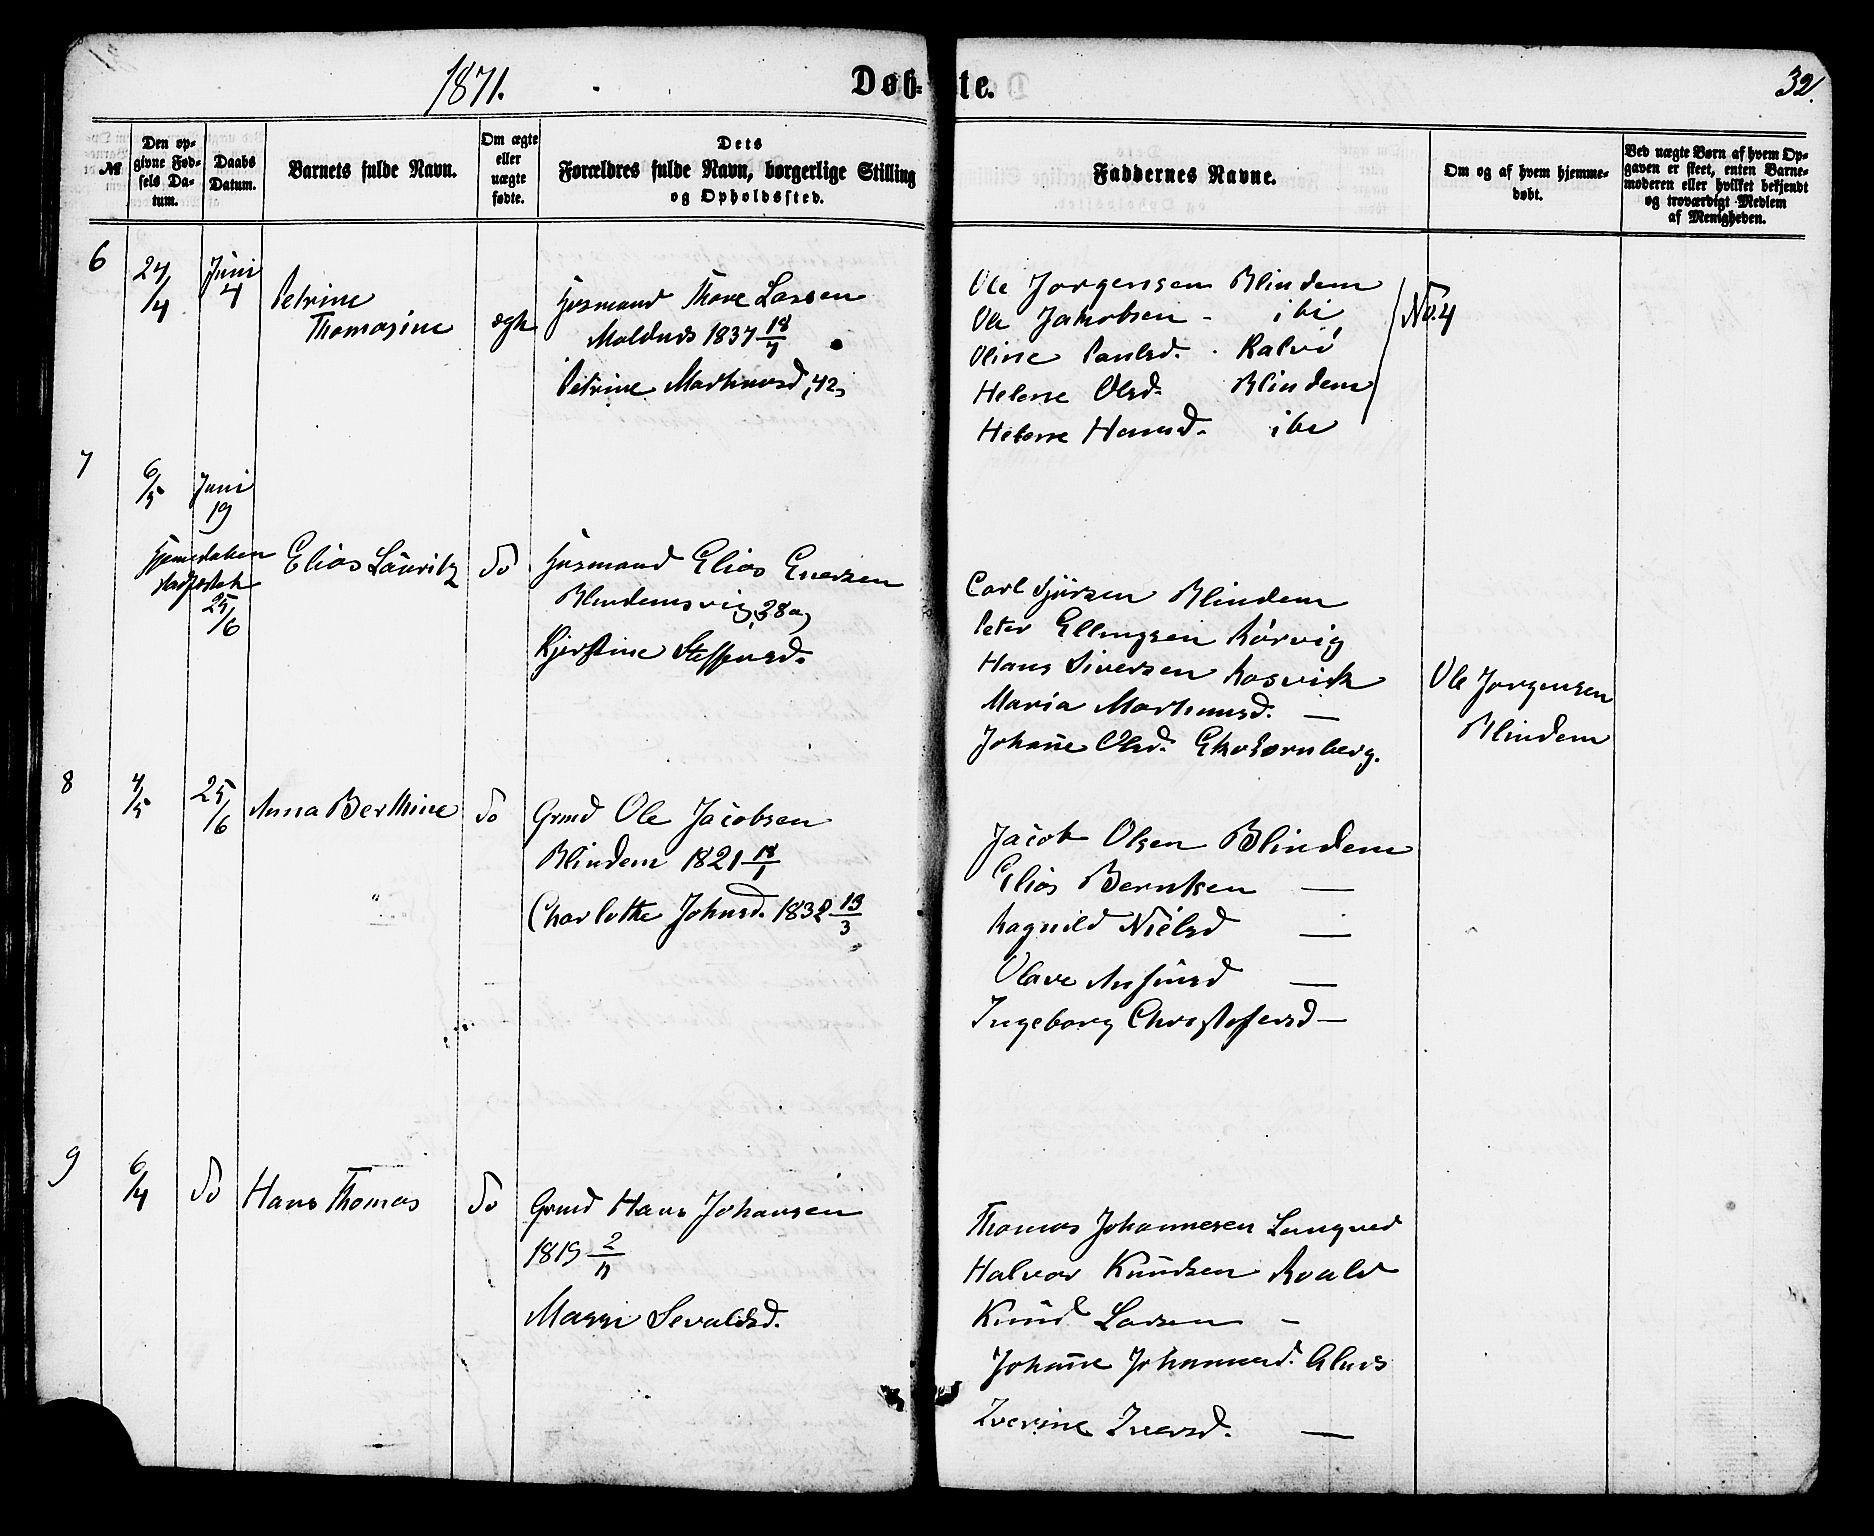 1871.
Døb- te.
32.
№
Den op-
givne Fød-
sels Da-
tum.
Daabs
Datum.
Barnets fulde Navn.
Om ægte
eller
uægte
fødte.
Dets
Forældres fulde Navn, borgerlige Stilling
og Opholdssted.
Faddernes Navne.
Om og af hvem hjemme-
døbt.
Ved uægte Børn af hvem Op-
gaven er skeet, enten Barne-
moderen eller hvilket bekjendt
og troværdigt Medlem
af Menigheden.
6
24/4
Juni
4
Petrine
Thomasine
ægte
Husmand Thore Larsen
Moldnes 1837 18/7
Petrine Martinusd. 42
Ole Jørgensen Blindem
Ole Jakobsen - ibi
Oline Paulsd. Kalvø
Helene Olsd. Blindem
Helene Hansd. ibi
No. 4
7
6/5
Juni
19
Hjemmedaaben
stadfæstet
25/6
Elias Lauritz
do
Husmand Elias Eversen
Blindemsvig 28 a
Kjerstine Steffensd.
Carl Sjursen Blindem
Peter Ellingsen Rörvig
Hans Siversen Rosvik
Maria Martinusd. —
Johanne Olsd.
Ole Jørgensen
Blindem
8
4/5
25/6
Anna Berthine
do
Grmd Ole Jacobsen
Blindem 1821 18/1
Charlotte Johnsd. 1832 13/3
Jacob Olsen Blindem
Elias Berntsen —
Ragnild Nielsd —
Olave Ansinsd —
Ingeborg Christofersd —
9
6/4
do
Hans Thomas
do
Grmd Hans Johansen
1819 2/11
Massi Sevaldsd.
Thomas Johannesen Langved
Halvor Knudsen Roald
Knud Larsen -
Johanne Johannesd. Alnes
Iverine Iversd. —